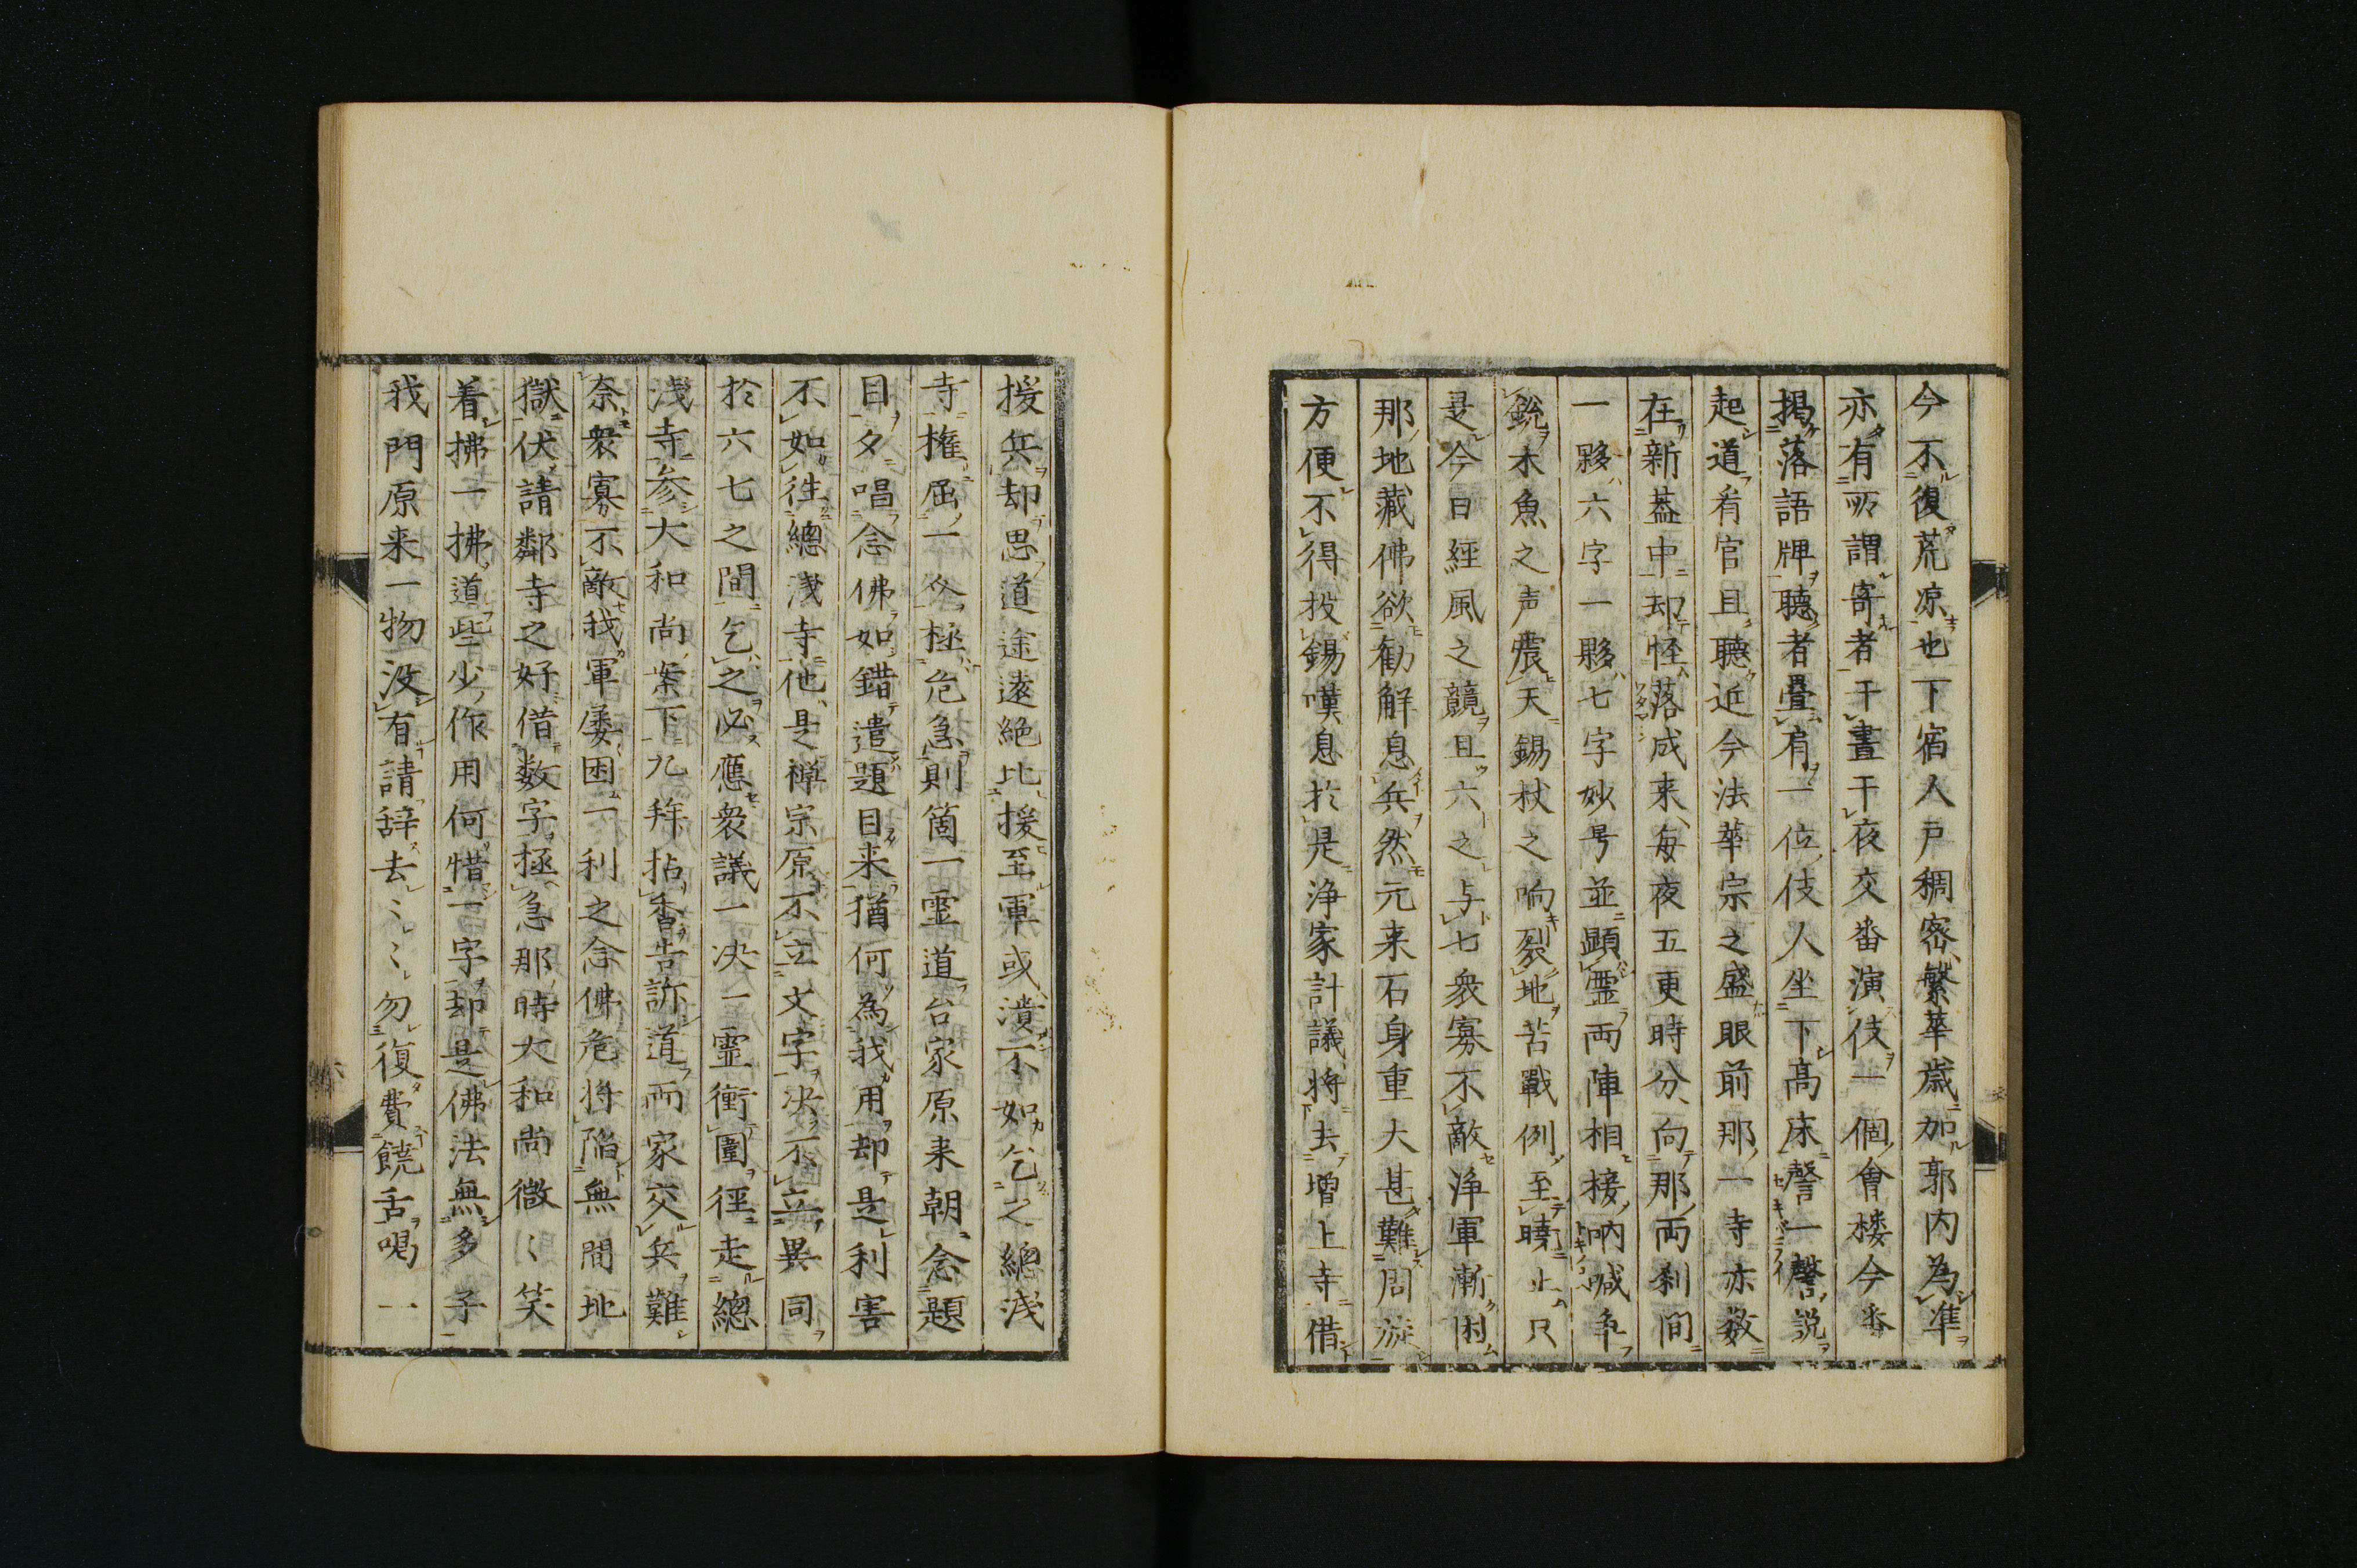 今不復荒凉也下宿人戸稠密繁華歳加郭内為準
亦有所謂寄者干晝干夜交番演伎一個會楼今番
掲落語牌聴者畳肩一位伎人坐下高床謦一謦説
起道看官且聴近今法華宗之盛眼前那一寺亦数
在新葢中却怪落成来毎夜五更時分向那両刹間
一夥六字一夥七字妙号並顕霊両陣相接吶喊争
鋭木魚之声震天錫杖之响裂地苦戰例至曉止只
是今日経風之競且六之与七衆寡不敵浄軍漸困
那地藏佛欲勧解息兵然元来石身重大甚難周旋
方便不得投錫嘆息於是浄家計議将去増上寺借
援兵却思道途遠絶比援至軍或潰不如乞之總浅
寺権屈一糸極危急則箇一霊道台家原来朝念題
目夕唱念佛如錯遣題目来猶何為我用却是利害
不如往總浅寺他是禅宗原不立文字決不立異同
於六七之間乞之必應衆議一决一霊衝圍徑走總
浅寺参大和尚案下九拜拈香告訴道両家交兵難
奈衆寡不敵我軍屡困一利之念佛危将陥無間地
獄伏請鄰寺之好借数字極急那時大和尚微〻笑
着拂一拂道些少作用何惜一字却是佛法無多子
我門原来一物没有請辞去〻〻勿復費饒舌喝一